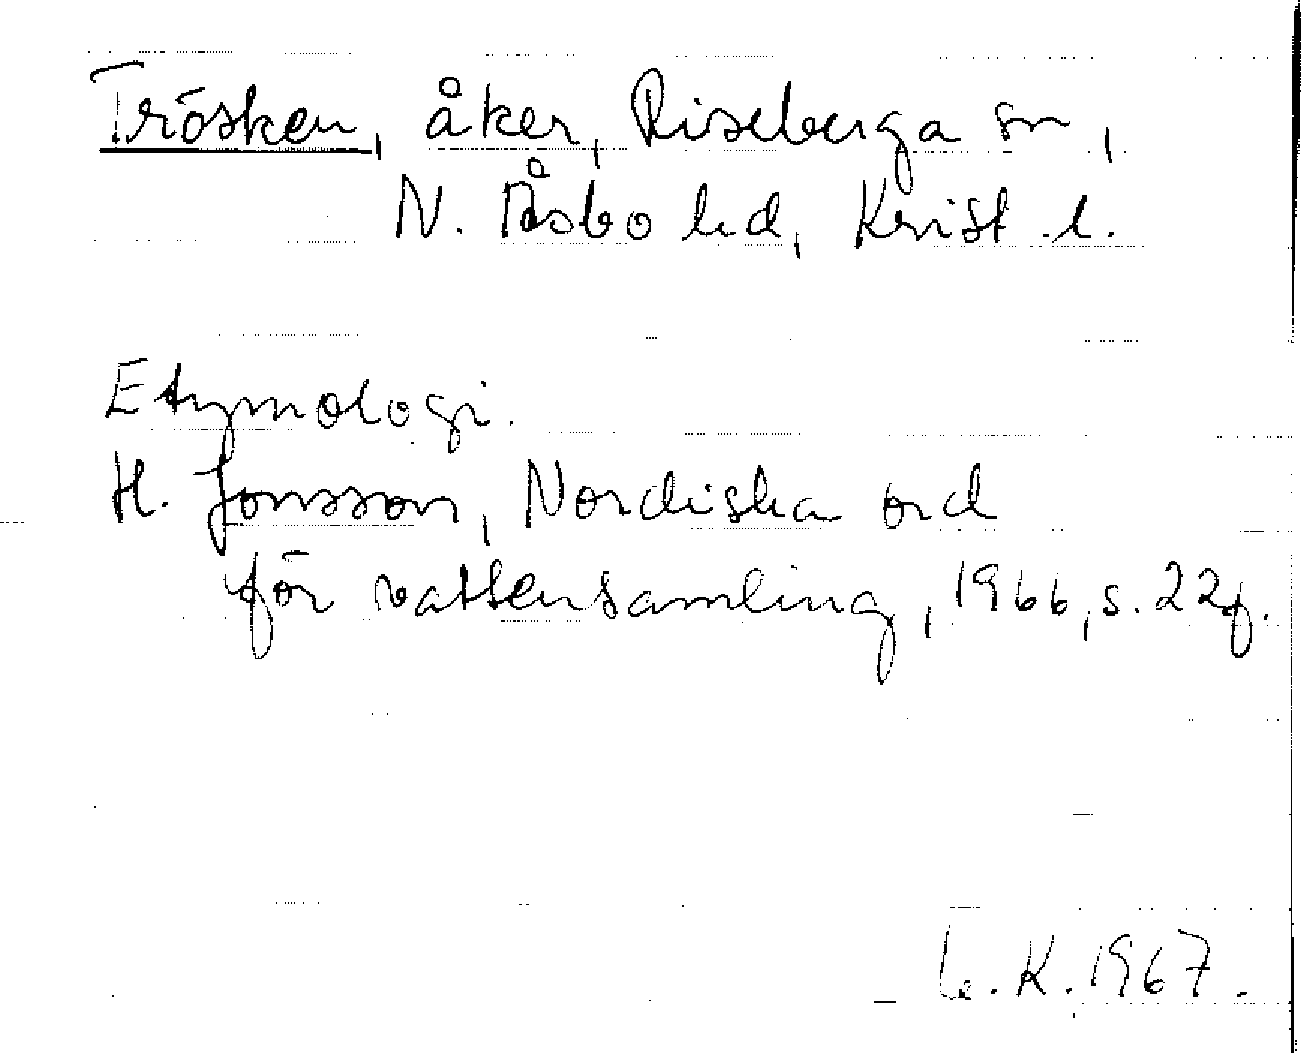 Trösken, åker, Riseberga sn,
N. Åsbo hd, Krist. l.
Etymologi.
H. Jonsson, Nordiska ord
för vattensamling, 1966, s. 22f.
K. 1967.